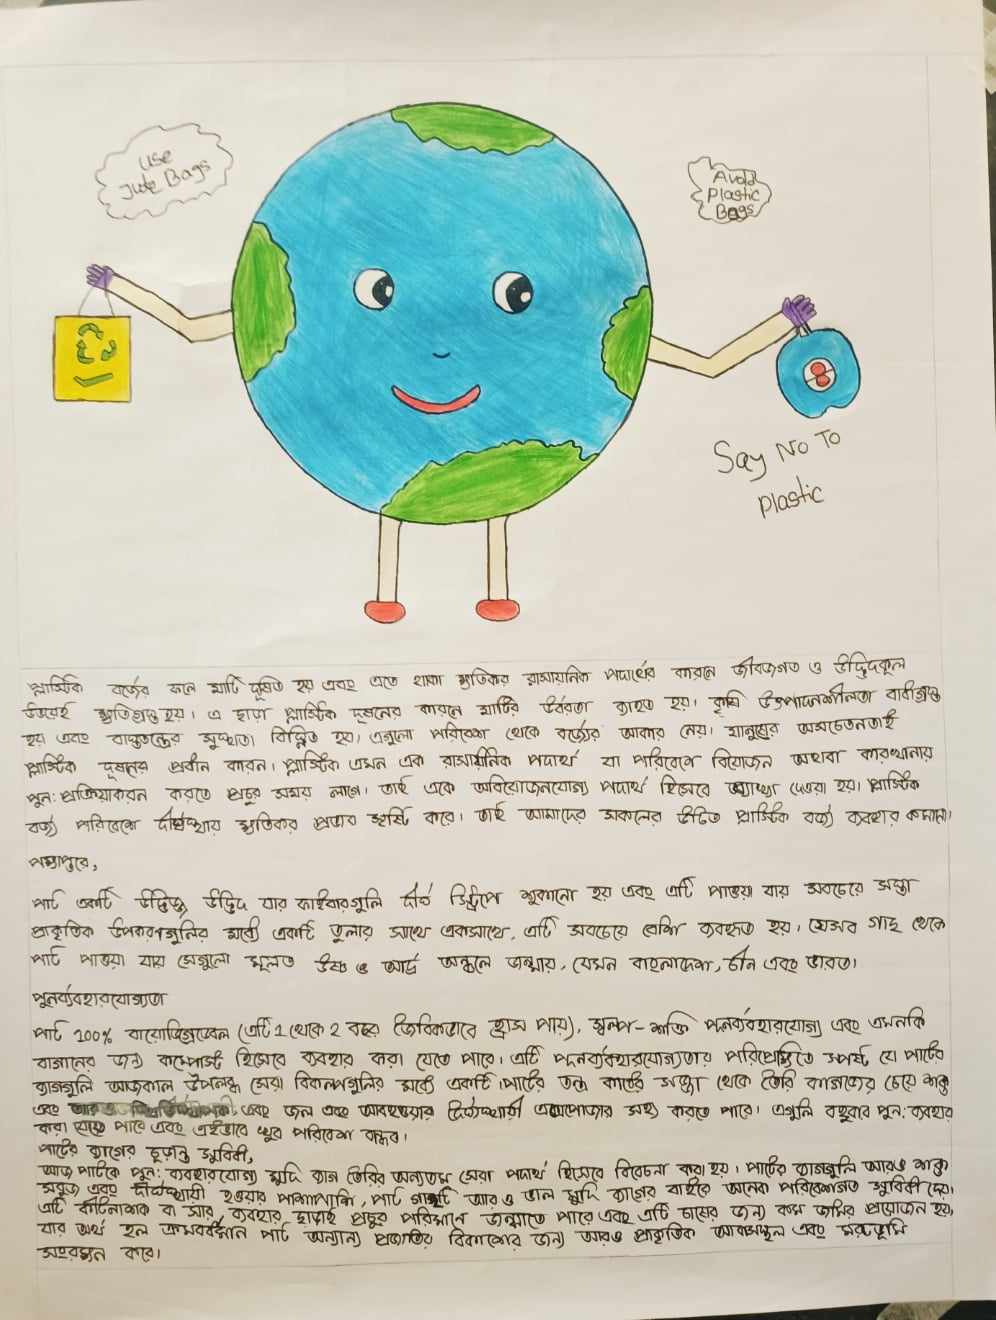 Use
Jute Bags
Avoid
Plastic
Bags
Say No To
Plastic
প্লাস্টিক বর্জ্যের ফলে মাটি দূষিত হয় এবং এতে থাকা ক্ষতিকর রাসায়নিক পদার্থের কারনে জীবজগত ও উদ্ভিদকুল
উভয়েই ক্ষতিগ্রস্ত হয়। এ ছাড়া প্লাস্টিক দূষনের কারনে মাটির উর্বরতা ব্যহত হয়। কৃষি উৎপাদনশীলতা বাধাগ্রস্ত
হয় এবং বাস্তুতন্ত্রের সুস্থতা বিঘ্নিত হয়। এগুলো পরিবেশ থেকে বর্জ্যের আকার নেয়। মানুষের অসচেতনতাই
প্লাস্টিক দূষনের প্রধান কারন। প্লাস্টিক এমন এক রাসায়নিক পদার্থ যা পরিবেশে বিয়োজন অথবা কারখানায়
পুন:প্রক্রিয়াকরন করতে প্রচুর সময় লাগে। তাই একে অবিয়োজনযোগ্য পদার্থ হিসেবে আখ্যা দেওয়া হয়। প্লাস্টিক
বর্জ্য পরিবেশে দীর্ঘস্থায় ক্ষতিকর প্রভাব সৃষ্টি করে। তাই আমাদের সকলের উচিত প্লাস্টিক বর্জ্য ব্যবহার কমানো।
পাট একটি উদ্ভিজ্জ উদ্ভিদ যার ফাইবারগুলি দীর্ঘ স্ট্রিপে শুকানো হয় এবং এটি পাওয়া যায় সবচেয়ে সস্তা
প্রাকৃতিক উপকরণগুলির মধ্যে একটি তুলার সাথে একসাথে, এটি সবচেয়ে বেশি ব্যবহৃত হয়। যেসব গাছ থেকে
পাট পাওয়া যায় সেগুলো মূলত উষ্ণ ও আর্দ্র অঞ্চলে জন্মায়, যেমন বাংলাদেশ, চীন এবং ভারত।
পুনর্ব্যবহারযোগ্যতা
পাট 100% বায়োডিগ্রেডেবল (এটি 1 থেকে 2 বছর জৈবিকভাবে হ্রাস পায়), স্বল্প-শক্তি পুনর্ব্যবহারযোগ্য এবং এমনকি
বাগানের জন্য কম্পোস্ট হিসেবে ব্যবহার করা যেতে পারে। এটি পুনর্ব্যবহারযোগ্যতার পরিপ্রেক্ষিতে স্পষ্ট যে পাটের
ব্যাগগুলি আজকাল উপলব্ধ সেরা বিকল্পগুলির মধ্যে একটি। পাটের তন্তু কাঠের সজ্জা থেকে তৈরি কাগজের চেয়ে শক্ত
এবং এবং জল এবং আবহাওয়ার দীর্ঘস্থায়ী এক্সপোজার সহ্য করতে পারে। এগুলি বহুবার পুন:ব্যবহার
করা যেতে পারে এবং এইভাবে খুব পরিবেশ বান্ধব।
পাটের ব্যাগের চূড়ান্ত সুবিধা,
আজ পাটকে পুন:ব্যবহারযোগ্য মুদি ব্যাগ তৈরির অন্যতম সেরা পদার্থ হিসেবে বিবেচনা করা হয়। পাটের ব্যাগগুলি আরও শক্ত
সবুজ এবং দীর্ঘস্থায়ী হওয়ার পাশাপাশি, পাট গাছটি আরও ভাল মুদি ব্যাগের বাইরে অনেক পরিবেশগত সুবিধা দেয়।
এটি কীটনাশক বা সার, ব্যবহার ছাড়াই প্রচুর পরিমানে জন্মাতে পারে এবং এটি চাষের জন্য কম জমির প্রয়োজন হয়,
যার অর্থ হল ক্রমবর্ধমান পাট অন্যান্য প্রজাতির বিকাশের জন্য আরও প্রাকৃতিক আবাসস্থল এবং মরুভূমি
সংরক্ষন করে।